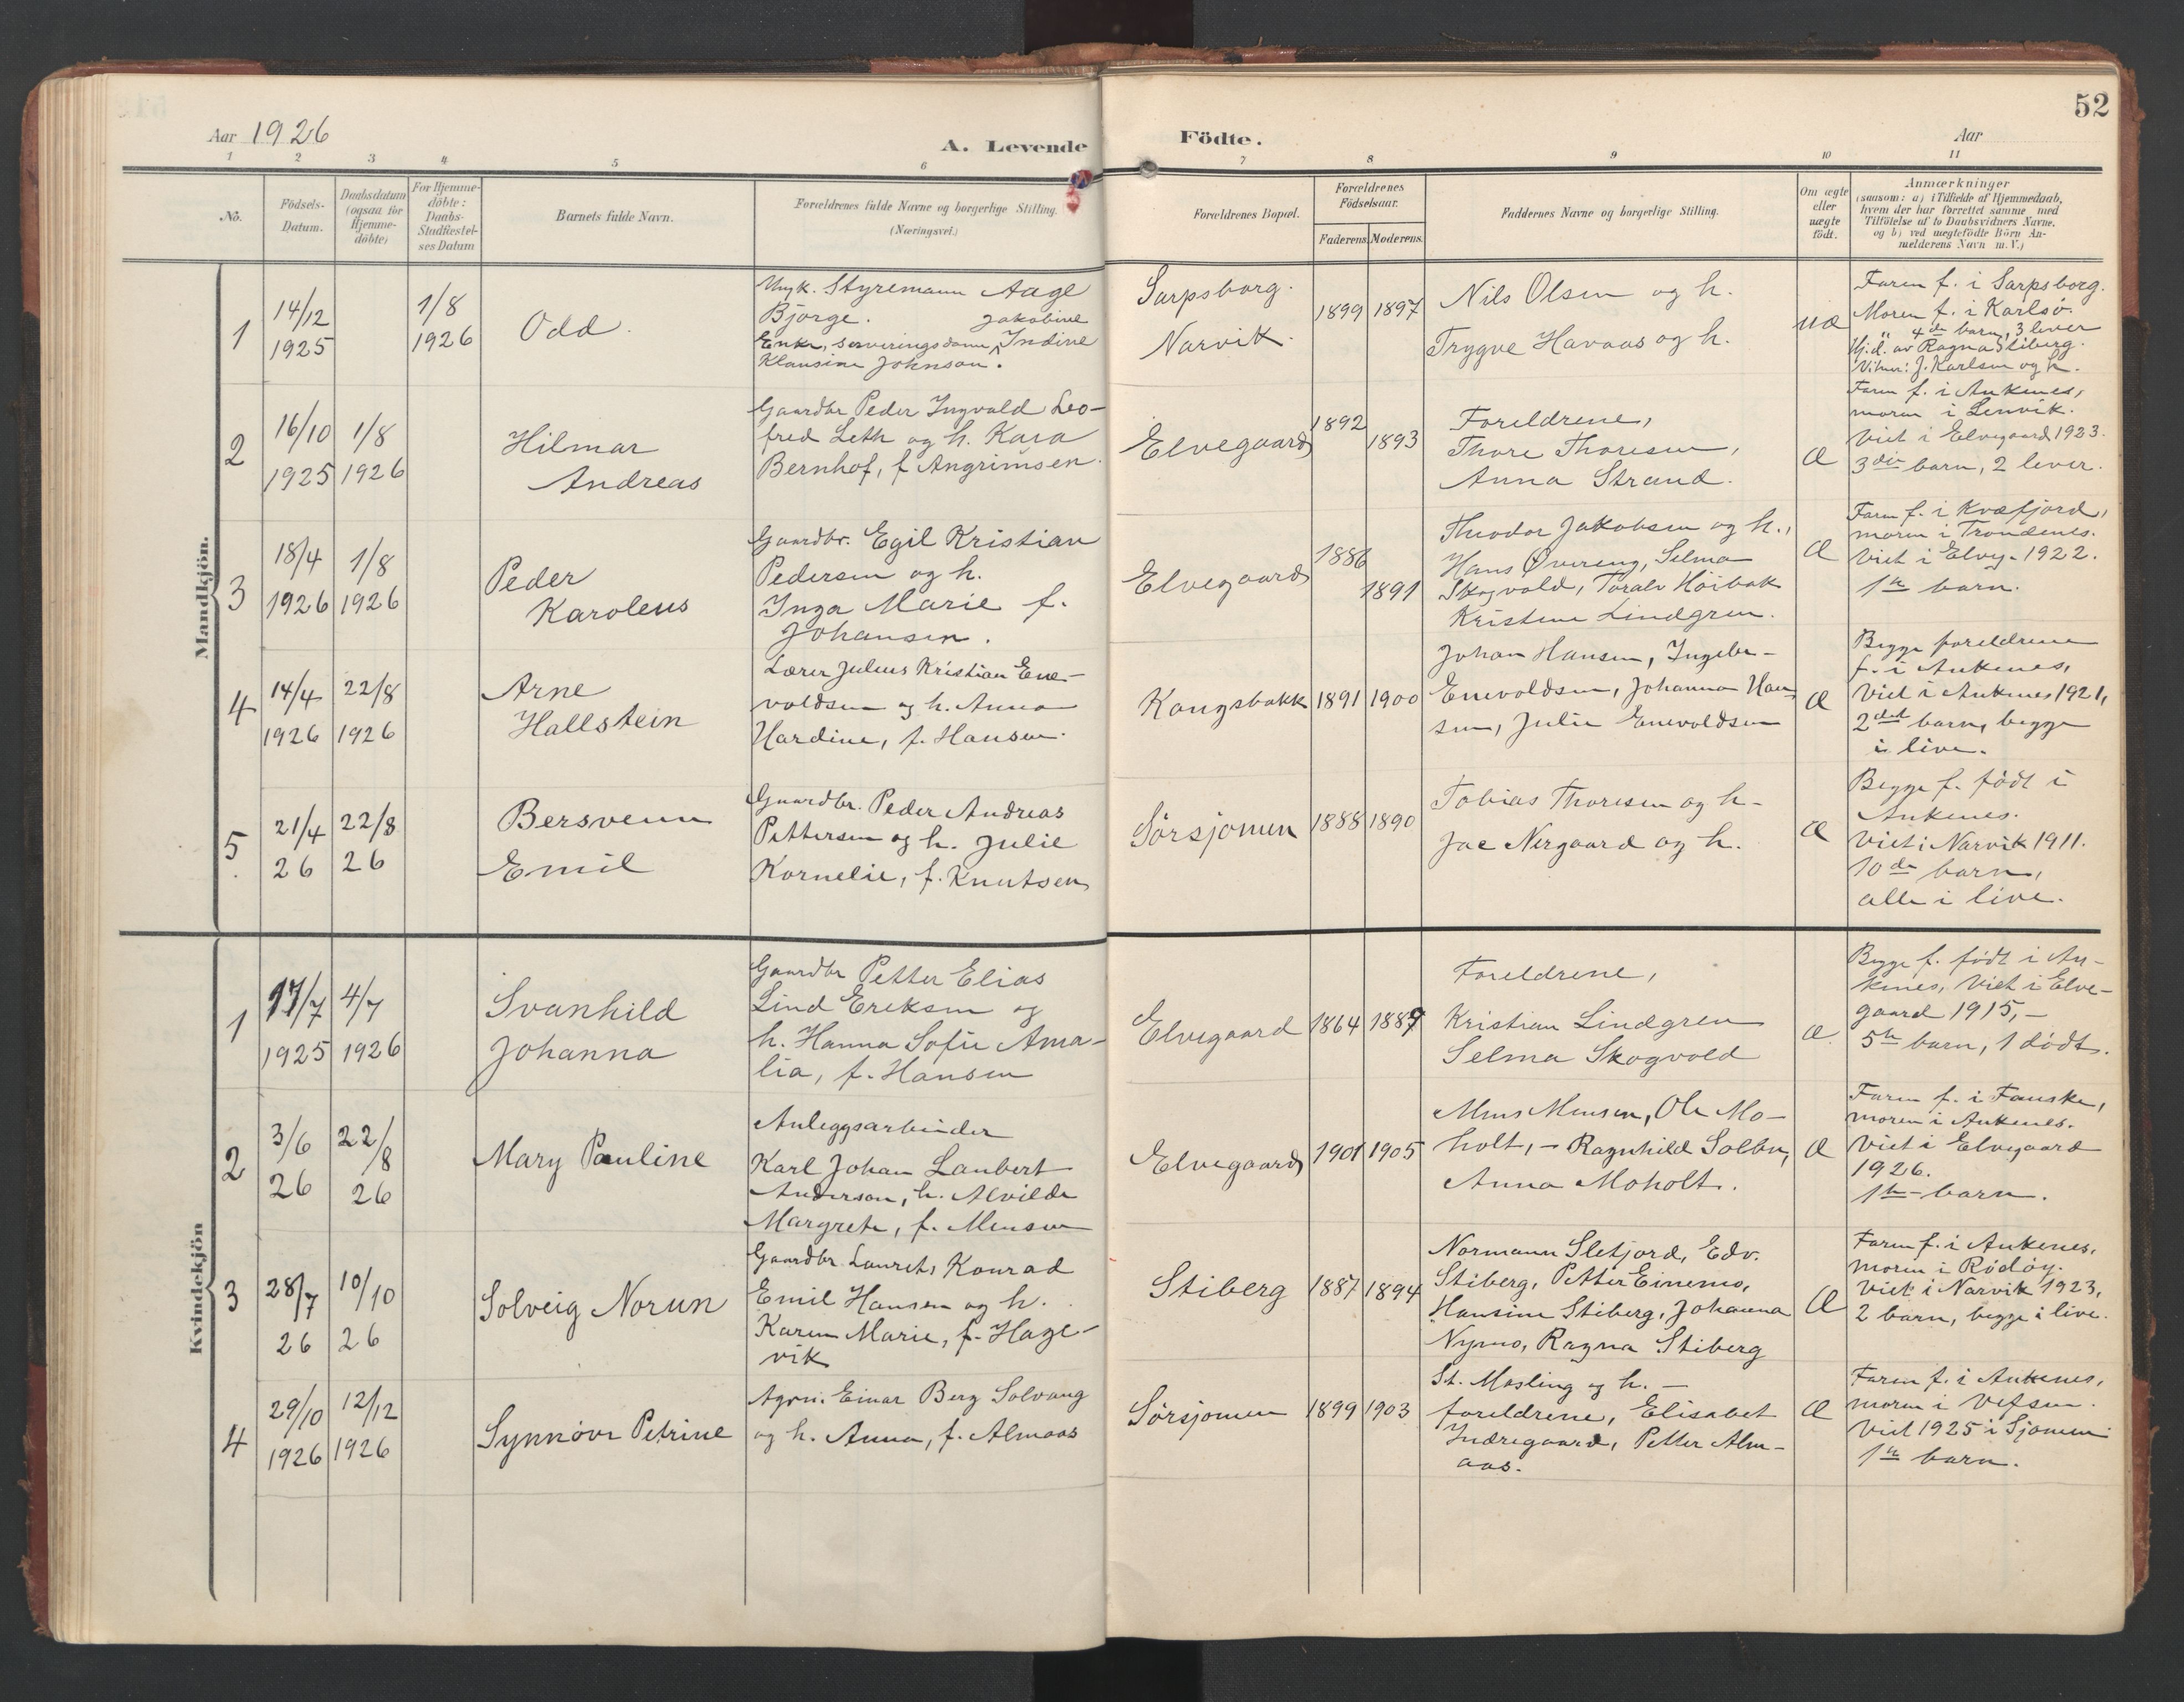 52
Aar 1926
A. Levende Födte.
Aar
1 2 3 4 5 6 7 8 9 10 11
No.
Födsels-
Datum.
Daabsdatum
(ogsaa for
Hjemme-
döbte)
For Hjemme-
döbte:
Daabs-
Stadfæstel-
ses Datum
Barnets fulde Navn.
Forældrenes fulde Navne og borgerlige Stilling.
(Næringsvei.)
Forældrenes Bopæl.
Forældrenes
Födselsaar.
Faderens. Moderens.
Faddernes Navne og borgerlige Stilling.
Om ægte
eller
uægte
födt.
Anmærkninger
(saasom: a) i Tilfælde af Hjemmedaab,
hvem der har forrettet samme med
Tilföielse af to Daabsvidners Navne.
og b) ved uægtefödte Börn An-
melderens Navn m. V.)
Mandkjön.
1
14/12
1925
1/8
1926
Odd.
Ungk. Styremann Aage
Bjørge. Jakobine
Enke, serveringsdame Indine
Klausine Johnson.
Sarpsborg.
Narvik.
1899 1897
Nils Olsen og h.
Trygve Havaas og h.
uæ
Faren f. i Sarpsborg.
Moren f. i Karlsø.
" 4de barn, 3 lever
Hj.d. av Ragna Stiberg.
Vitner: J. Karlsen og h.
2
16/10
1925
1/8
1926
Hilmar
Andreas
Gaardbr Peder Ingvald Leo-
fred Leth og h. Kara
Bernhof, f Angrimsen.
Elvegaard
1892
1893
Foreldrene,
Thore Thoresen,
Anna Strand.
Æ
Faren f. i Ankenes,
moren i Lenvik.
Viet i Elvegaard 1923.
3die barn, 2 lever.
3
18/4
1926
1/8
1926
Peder
Karoleus
Gaardbr. Egil Kristian
Pedersen og h.
Inga Marie f.
Johansen.
Elvegaard
1886
1891
Theodor Jakobsen og h.,
Hans Øvereng, Selma
Skogvold, Toralv Høibak
Kristine Lindgren.
Æ
Faren f. i Kvæfjord,
moren i Trondenes.
Viet i Elveg. 1922.
1te barn.
4
14/4
1926
22/8
1926
Arne
Hallstein
Lærer Julius Kristian Ene-
voldsen og h. Anna
Hardine, f. Hansen.
Kongsbakk
1891 1900
Johan Hansen, Ingebr-
Enevoldsen, Johanna Han
sen, Julie Enevoldsen
Æ
Begge foreldrene
f. i Ankenes,
Viet i Ankenes 1921,
2det barn, begge
i live.
5
21/4
26
22/8
26
Bersvenn
Emil
Gaardbr. Peder Andreas
Pettersen og h. Julie
Kornelie, f. Knutsen
Sørsjomen
1888 1890
Tobias Thoresen og h-
Jac Nergaard og h.
Æ
Begge f. født i
Ankenes.
Viet i Narvik 1911.
10de barn,
alle i live.
Kvindekjön
1
17/7
1925
4/7
1926
Svanhild
Johanna
Gaardbr Petter Elias
Lind Eriksen og
h. Hanna Sofie Ama-
lia, f. Hansen
Elvegaard
1864 1889
Foreldrene,
Kristian Lindgren
Selma Skogvold
Æ.
Begge f. født i An-
kenes, Viet i Elve-
gaard 1915,-
5te barn, 1 dødt.
2
3/6
26
22/8
26
Mary Pauline
Anleggsarbeider
Karl Johan Laubert
Anderson, h. Alvilde
Margrete, f. Monsen
Elvegaard
1901 1905
Mons Monsen, Ole Mo-
holt, - Ragnhild Solbu,
Anna Moholt.
Æ
Faren f. i Fauske,
moren i Ankenes.
Viet i Elvegaard
1926.
1te barn.
3
28/7
26
10/10
26
Solveig Norun
Gaardbr Laurits Konrad
Emil Hansen og h.
Karen Marie, f. Hage-
vik
Stiberg
1887 1894
Normann Sletjord, Edv.
Stiberg, Petter Einemo,
Hansine Stiberg, Johanna
Nymo, Ragna Stiberg
Æ
Faren f. i Ankenes,
moren i Rødøy.
Viet i Narvik 1923,
2 barn, begge i live.
4
29/10
1926
12/12
1926
Synnøve Petrine
Agron. Einar Berg Solvang
og h. Anna, f. Almaas
Sørsjomen
1899 1903
St. Mosling og h. -
foreldrene, Elisabet
Indregaard, Petter Alm-
aas.
Æ
Faren f. i Ankenes,
moren i Vefsen.
Viet 1925 i Sjomen
1te barn.